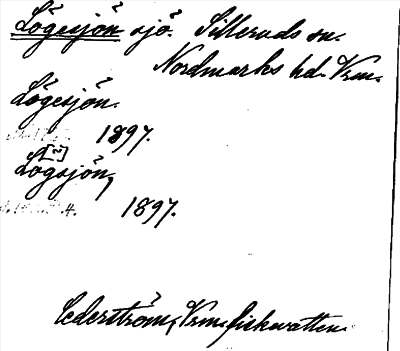 Lögesjön sjö. Silleruds sn.
Nordmarks hd. Vrm.
Lögesjön.
1897.
[~]
Lögsjön,
1897.
Cederström, Vrm. fiskevatten.